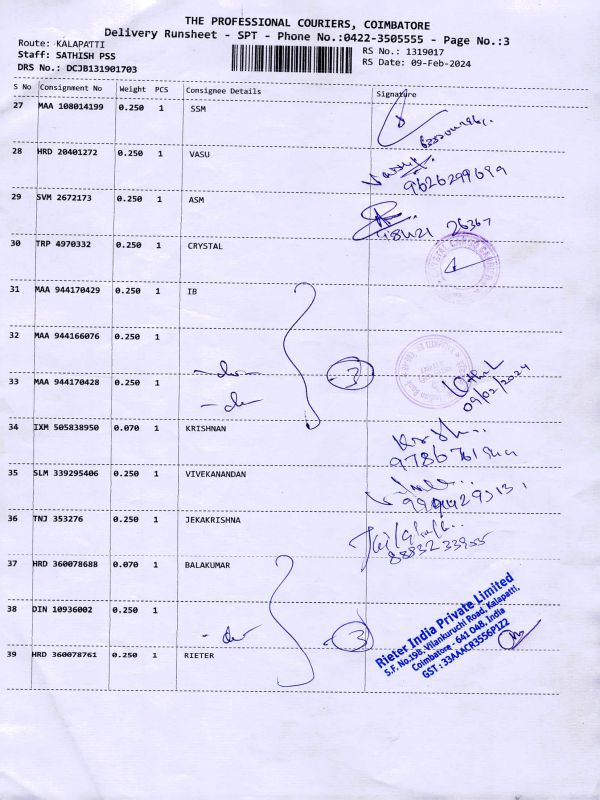 THE PROFESSIONAL COURIERS, COIMBATORE
Delivery Runsheet - SPT - Phone No.:0422-3505555 - Page No.:3
Route: KALAPATTI
RS No.: 1319017
Staff: SATHISH PSS
RS Date: 09-Feb-2024
DRS No.: DCJB131901703
S No Consignment No Weight PCS Consignee Details Signature
27 MAA 108014199 0.250 1 SSM
28 HRD 20401272 0.250 1 VASU
9626299699
29 SVM 2672173 0.250 1 ASM
30 TRP 4970332 0.250 1 CRYSTAL
31 MAA 944170429 0.250 1 IB
32 MAA 944166076 0.250 1
3
33 MAA 944170428 0.250 1
09/02/2024
34 IXM 505838950 0.070 1 KRISHNAN
35 SLM 339295406 0.250 1 VIVEKANANDAN
36 TNJ 353276 0.250 1 JEKAKRISHNA
37 HRD 360078688 0.070 1 BALAKUMAR
38 DIN 10936002 0.250 1
3
39 HRD 360078761 0.250 1 RIETER
Rieter India Private Limited
S.F. No.198, Vilankuruchi Road, Kalapatti,
Coimbatore - 641 048, India
GST : 33AAACR3556P1Z2